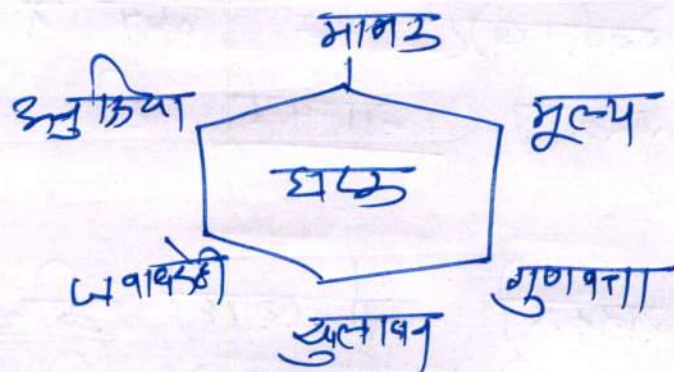 मानक
अनुक्रिया
मूल्य
घटक
जवाबदेही
गुणवत्ता
खुलापन